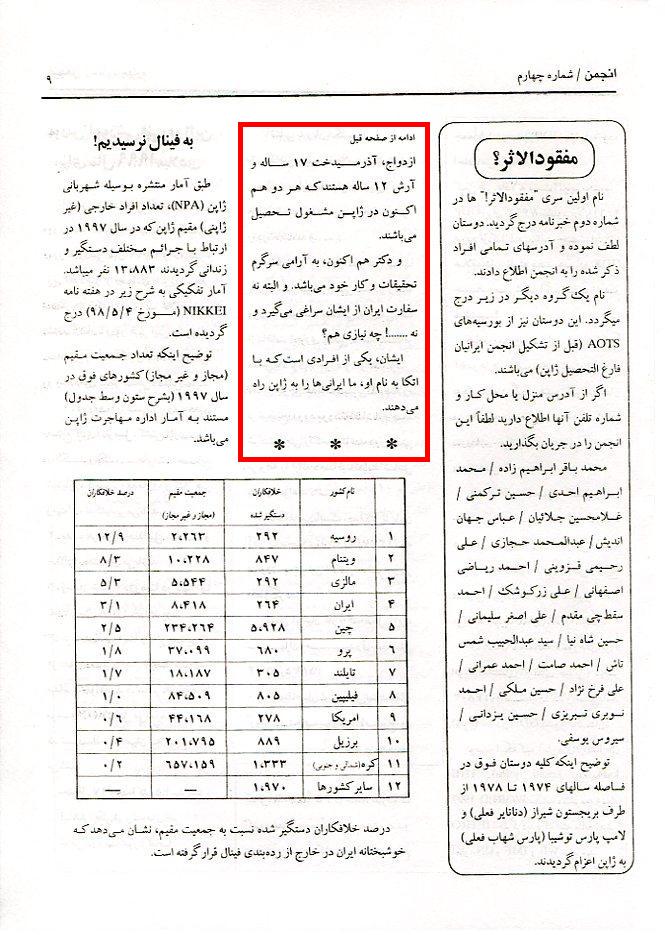 انجمن / شماره چهارم
۹
مفقودالاثر؟
نام اولین سری "مفقودالاثر!" ها در
شماره دوم خبرنامه درج گردید. دوستان
لطف نموده و آدرسهای تمامی افراد
ذکر شده را به انجمن اطلاع دادند.
نام یک گروه دیگر در زیر درج
میگردد. این دوستان نیز از بورسیه‌های
AOTS (قبل از تشکیل انجمن ایرانیان
فارغ التحصیل ژاپن) می‌باشند.
اگر از آدرس منزل یا محل کار و
شماره تلفن آنها اطلاع دارید لطفاً این
انجمن را در جریان بگذارید.
محمد باقر ابراهیم زاده / محمد
ابراهیم احدی / حسین ترکمنی /
غلامحسین جلائیان / عباس جهان
اندیش / عبدالمحمد حجازی / علی
رحیمی قزوینی / احمد ریاضی
اصفهانی / علی زرکوشک / احمد
سقط‌چی مقدم / علی اصغر سلیمانی /
حسین شاه نیا / سید عبدالحبیب شمس
تاش / احمد صامت / احمد عمرانی /
علی فرخ نژاد / حسین ملکی / احمد
نوبری تبریزی / حسین یزدانی /
سیروس یوسفی.
توضیح اینکه کلیه دوستان فوق در
فاصله سالهای ۱۹۷۴ تا ۱۹۷۸ از
طرف بریجستون شیراز (دناتایر فعلی) و
لامپ پارس توشیبا (پارس شهاب فعلی)
به ژاپن اعزام گردیدند.
ادامه از صفحه قبل
ازدواج، آذرمیدخت ۱۷ ساله و
آرش ۱۲ ساله هستند که هر دو هم
اکنون در ژاپن مشغول تحصیل
می‌باشند.
و دکتر هم اکنون، به آرامی سرگرم
تحقیقات و کار خود می‌باشد. و البته نه
سفارت ایران از ایشان سراغی می‌گیرد و
نه .......! چه نیازی هم؟
ایشان، یکی از افرادی است که با
اتکا به نام او، ما ایرانی‌ها را به ژاپن راه
می‌دهند.
* * *
به فینال نرسیدیم!
طبق آمار منتشره بوسیله شهربانی
ژاپن (NPA)، تعداد افراد خارجی (غیر
ژاپنی) مقیم ژاپن که در سال ۱۹۹۷ در
ارتباط با جرائم مختلف دستگیر و
زندانی گردیدند ۱۳،۸۸۳ نفر میباشد.
آمار تفکیکی به شرح زیر در هفته نامه
NIKKEI (مورخ ۹۸/۵/۴) درج
گردیده است.
توضیح اینکه تعداد جمعیت مقیم
(مجاز و غیر مجاز) کشورهای فوق در
سال ۱۹۹۷ (بشرح ستون وسط جدول)
مستند به آمار اداره مهاجرت ژاپن
می‌باشد.
نام کشور خلافکاران دستگیر شده جمعیت مقیم (مجاز و غیر مجاز) درصد خلافکاران
۱ روسیه ۲۹۲ ۲،۲۶۳ ۱۲/۹
۲ ویتنام ۸۴۷ ۱۰،۲۲۸ ۸/۳
۳ مالزی ۲۹۲ ۵،۵۴۴ ۵/۳
۴ ایران ۲۶۴ ۸،۴۱۸ ۳/۱
۵ چین ۵،۹۲۸ ۲۳۴،۲۶۴ ۲/۵
۶ پرو ۶۸۰ ۳۷،۰۹۹ ۱/۸
۷ تایلند ۳۰۵ ۱۸،۱۸۷ ۱/۷
۸ فیلیپین ۸۰۵ ۸۴،۵۰۹ ۱/۰
۹ امریکا ۲۷۸ ۴۴،۱۶۸ ۰/۶
۱۰ برزیل ۸۸۹ ۲۰۱،۷۹۵ ۰/۴
۱۱ کره (شمالی و جنوبی) ۱،۳۳۳ ۶۵۷،۱۵۹ ۰/۲
۱۲ سایر کشورها ۱،۹۷۰ — —
درصد خلافکاران دستگیر شده نسبت به جمعیت مقیم، نشان می‌دهد که
خوشبختانه ایران در خارج از رده‌بندی فینال قرار گرفته است.